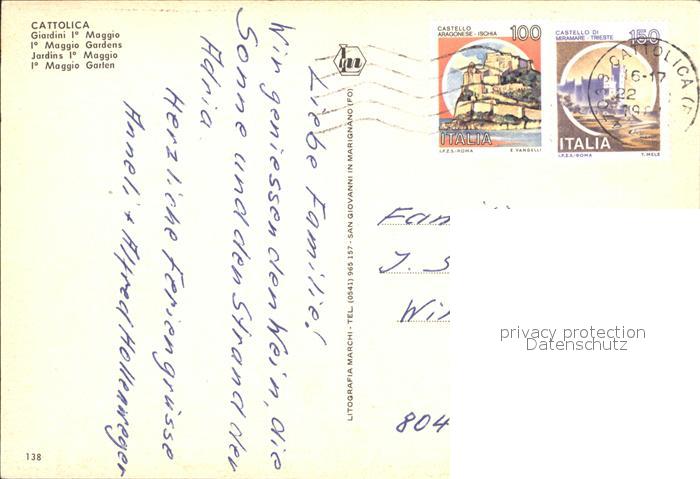 CATTOLICA
Giardini 1º Maggio
1º Maggio Gardens
Jardins 1º Maggio
1º Maggio Garten
Liebe Familie!
Wir geniessen den Wein, die
Sonne und den Strand der
Adria.
Herzliche Feriengrüsse
Anneli + Alfred Hollenweger
138
LITOGRAFIA MARCHI - TEL. (0541) 965 157 - SAN GIOVANNI IN MARIGNANO (FO)
CASTELLO
ARAGONESE - ISCHIA
100
ITALIA
I.P.Z.S. - ROMA E. VANGELLI
CASTELLO DI
MIRAMARE - TRIESTE
150
ITALIA
I.P.Z.S. - ROMA T. MELE
CATTOLICA
16-17
22
Fam
J. S
Win
804
privacy protection
Datenschutz